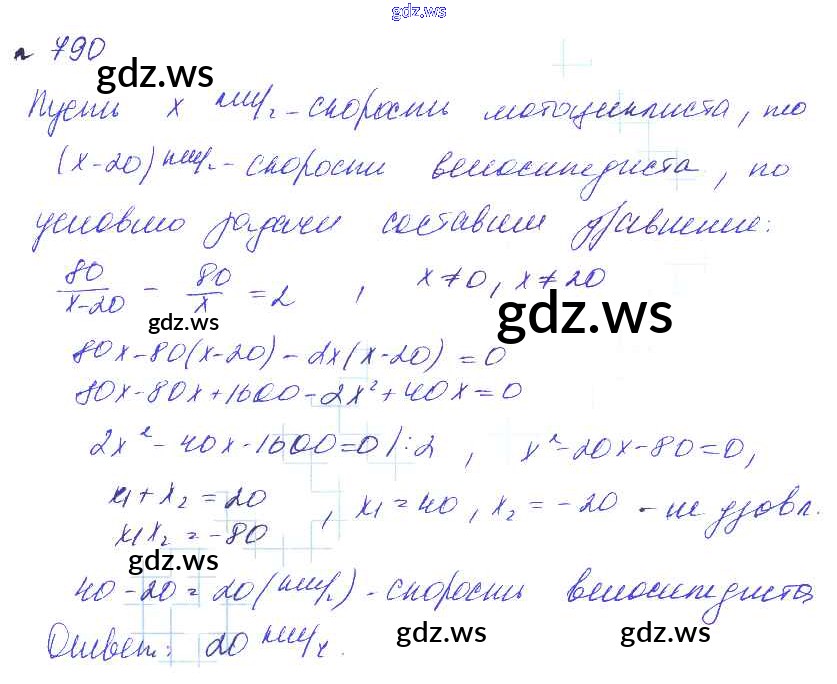 gdz.ws
№ 790
gdz.ws
Пусть x км/ч - скорость мотоциклиста, то
(x-20) км/ч - скорость велосипедиста, по
условию задачи составим уравнение:
80/(x-20) - 80/x = 2, x≠0, x≠20
gdz.ws
gdz.ws
80x-80(x-20)-2x(x-20)=0
80x-80x+1600-2x²+40x=0
2x²-40x-1600=0 |:2, x²-20x-80=0,
x₁+x₂=20
x₁x₂=-80, x₁=40, x₂=-20 - не удовл.
gdz.ws
40-20=20(км/ч) - скорость велосипедиста
Ответ: 20 км/ч.
gdz.ws
gdz.ws